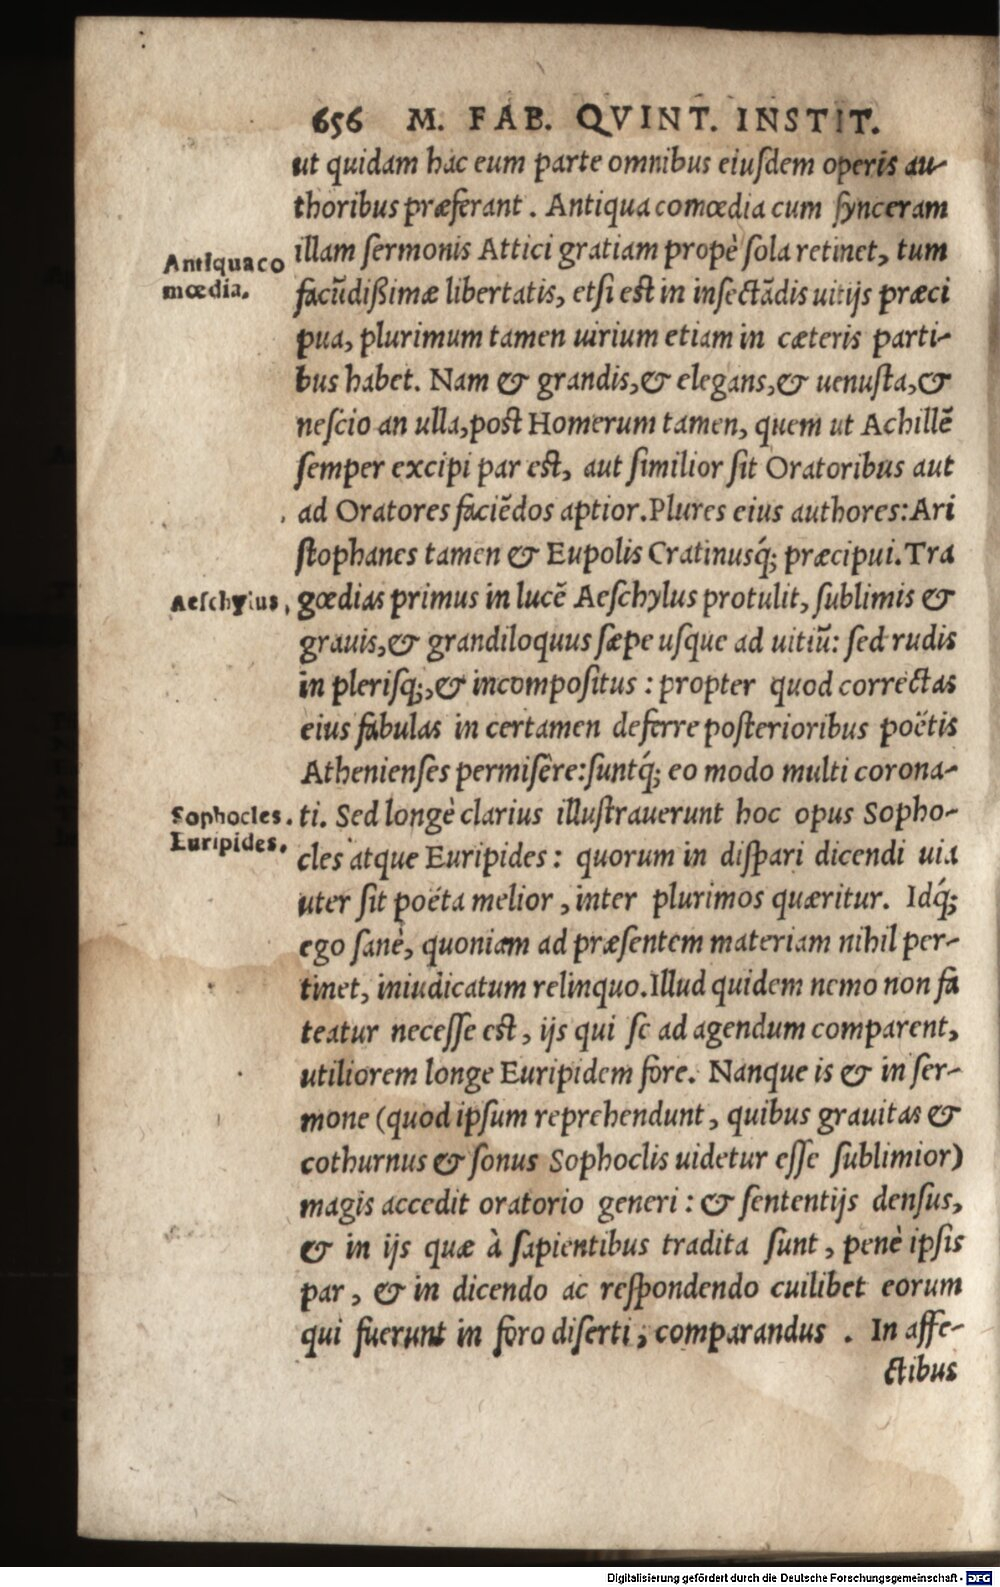 656 M. FAB. QVINT. INSTIT.
ut quidam hac eum parte omnibus eiuſdem operis au-
thoribus præferant. Antiqua comœdia cum ſynceram
Antiqua co
mœdia.
illam ſermonis Attici gratiam propè ſola retinet, tum
facũdißimæ libertatis, etſi est in inſectãdis uitijs præci
pua, plurimum tamen uirium etiam in cæteris parti-
bus habet. Nam & grandis, & elegans, & uenuſta, &
neſcio an ulla, post Homerum tamen, quem ut Achillẽ
ſemper excipi par est, aut ſimilior ſit Oratoribus aut
ad Oratores faciẽdos aptior. Plures eius authores: Ari
ſtophanes tamen & Eupolis Cratinusq́; præcipui. Tra
Aeſchylus,
gœdias primus in lucẽ Aeſchylus protulit, ſublimis &
grauis, & grandiloquus ſæpe uſque ad uitiũ: ſed rudis
in pleriſq;, & incompoſitus: propter quod correctas
eius fabulas in certamen deferre poſterioribus poëtis
Athenienſes permiſêre: ſuntq́; eo modo multi corona-
Sophocles.
Euripides.
ti. Sed longè clarius illuſtrauerunt hoc opus Sopho-
cles atque Euripides: quorum in diſpari dicendi uia
uter ſit poëta melior, inter plurimos quæritur. Idq́;
ego ſanè, quoniam ad præſentem materiam nihil per-
tinet, iniudicatum relinquo. Illud quidem nemo non fa
teatur neceſſe est, ijs qui ſe ad agendum comparent,
utiliorem longe Euripidem fore. Nanque is & in ſer-
mone (quod ipſum reprehendunt, quibus grauitas &
cothurnus & ſonus Sophoclis uidetur eſſe ſublimior)
magis accedit oratorio generi: & ſententijs denſus,
& in ijs quæ à ſapientibus tradita ſunt, penè ipſis
par, & in dicendo ac reſpondendo cuilibet eorum
qui fuerunt in foro diſerti, comparandus. In affe-
ctibus
Digitalisierung gefördert durch die Deutsche Forschungsgemeinschaft - DFG